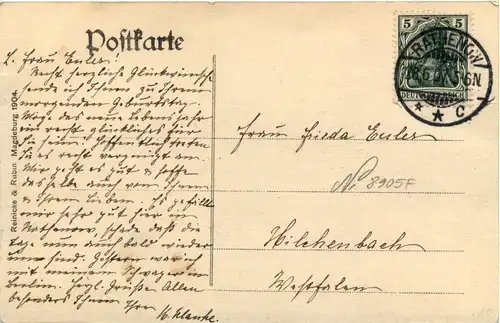 Postkarte
5 5
RATHENOW
6 07 5-6N
* * C
DEUTSCHES
L. Frau Euler!
Recht herzliche Glückwünsche
sende ich Ihnen zu Ihrem
morgenden Geburtstag.
Möge das neue Lebensjahr
ein recht glückliches für
Sie sein. Hoffentlich treten
Sie es recht vergnügt an.
Mir geht es gut & hoffe
dasselbe auch von Ihnen
& Ihren Lieben. Es gefällt
mir sehr gut hier in
Rathenow, schade daß die
Tage nun auch bald wieder
um sind. Gestern war ich
mit meinem Schwager in
Berlin. Herzl. Grüße Allen
besonders Ihnen Ihre
K. Klanke.
Reinicke & Rubin Magdeburg 1904.
Frau Frieda Euler
N: 8905F
Hilchenbach
Westfalen